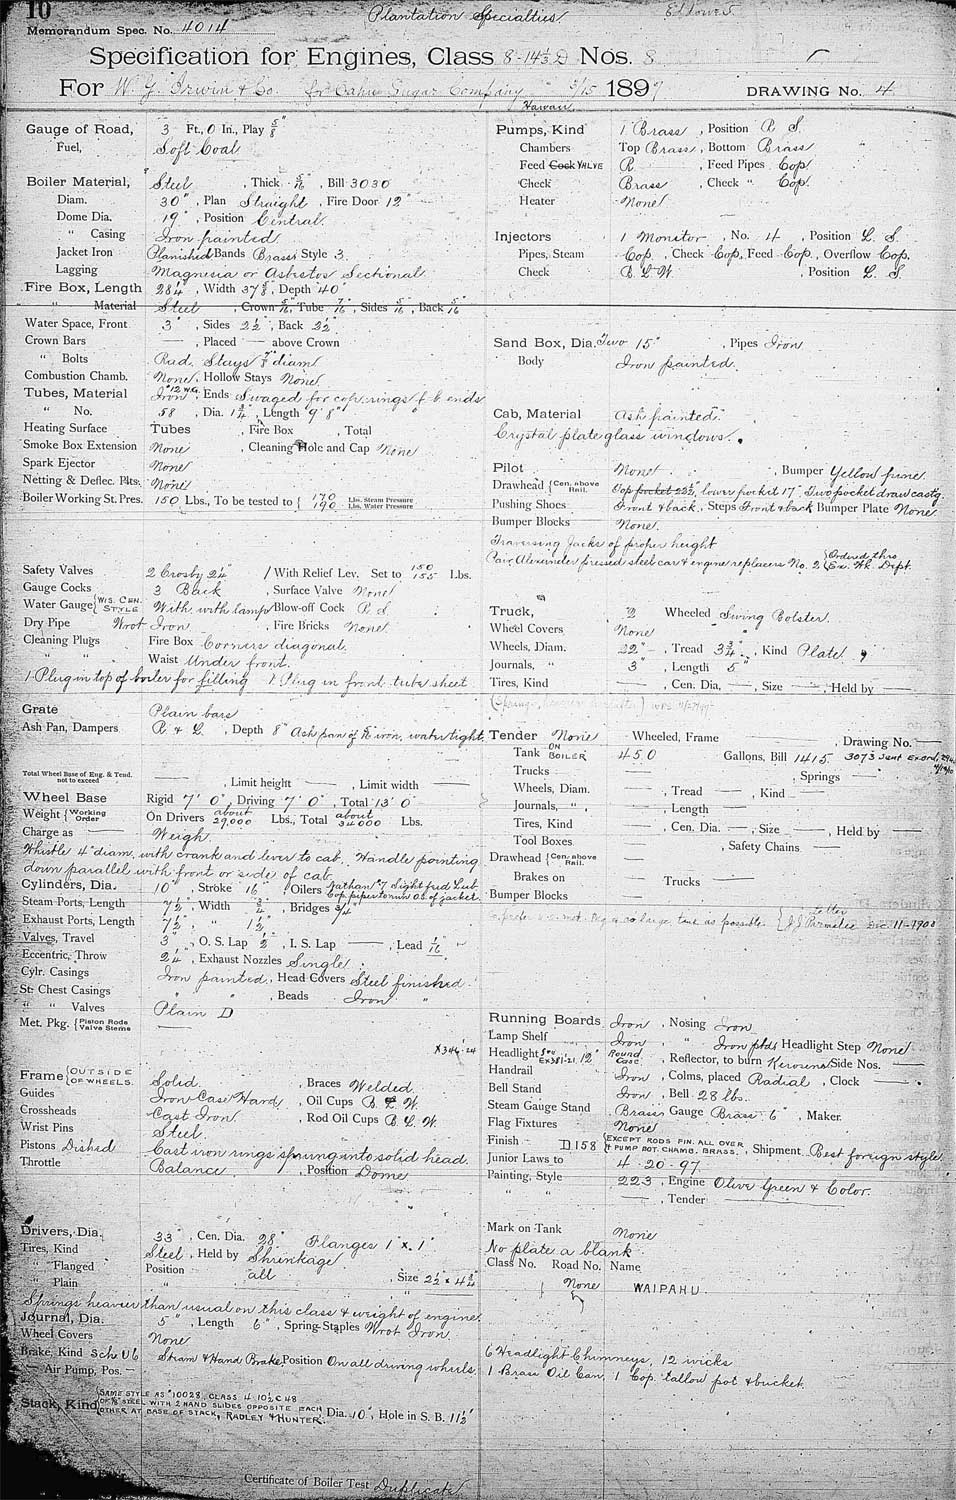 10
Plantation Specialties
Memorandum Spec. No. 4014
Specification for Engines, Class 8-14½ D Nos. 8
For W. G. Irwin & Co. for Oahu Sugar Company 5/15 1897 DRAWING No. 4
Hawaii
Gauge of Road, 3 Ft., 0 In., Play 5/8"
Fuel, Soft Coal
Boiler Material, Steel, Thick 5/16", Bill 3030
Diam. 30", Plan Straight, Fire Door 12"
Dome Dia. 19", Position Central.
" Casing Iron painted
Jacket Iron Planished Bands Brass Style 3.
Lagging Magnesia or Asbestos Sectional
Fire Box, Length 28¼", Width 37⅝", Depth 40"
" Material Steel, Crown 5/16, Tube 7/16, Sides 5/16, Back 5/16
Water Space, Front 3", Sides 2½", Back 2½"
Crown Bars —, Placed — above Crown
" Bolts Rad. Stays ⅞" diam
Combustion Chamb. None, Hollow Stays None
Tubes, Material Iron #12 W.G. Ends Swaged for cop. rings f. b. ends
" No. 58, Dia. 1¾", Length 9' 8"
Heating Surface Tubes, Fire Box, Total
Smoke Box Extension None, Cleaning Hole and Cap None
Spark Ejector None
Netting & Deflec. Plts. None
Boiler Working St. Pres. 150 Lbs., To be tested to { 170 Lbs. Steam Pressure
190 Lbs. Water Pressure
Safety Valves 2 Crosby 2¼" / With Relief Lev. Set to 150 155 Lbs.
Gauge Cocks 3 Back, Surface Valve None
Water Gauge { WIS. CEN. STYLE With, with lamp Blow-off Cock R. S.
Dry Pipe Wrot Iron, Fire Bricks None.
Cleaning Plugs Fire Box Corners diagonal.
" " Waist Under front.
1 Plug in top of boiler for filling 1 Plug in front tube sheet
Grate Plain bars
Ash Pan, Dampers R & L, Depth 8" Ash pan of iron, water tight.
Total Wheel Base of Eng. & Tend. not to exceed —, Limit height —, Limit width —
Wheel Base Rigid 7' 0", Driving 7' 0", Total 13' 0"
Weight { Working Order On Drivers about 29,000 Lbs., Total about 34000 Lbs.
Charge as — Weigh.
Whistle 4" diam. with crank and lever to cab. Handle pointing
down parallel with front or side of cab.
Cylinders, Dia. 10", Stroke 16", Oilers Nathan #7 Sight feed Lub.
Cop. pipe to run o.s. of jacket.
Steam Ports, Length 7½", Width ¾", Bridges ¾"
Exhaust Ports, Length 7½" " 1½"
Valves, Travel 3", O. S. Lap ½", I. S. Lap —, Lead 1/16"
Eccentric, Throw 2¼", Exhaust Nozzles Single.
Cylr. Casings Iron painted, Head Covers Steel finished
St. Chest Casings " ", Beads Iron "
" " Valves Plain D
Met. Pkg. { Piston Rods Valve Stems —
X346-24
Frame { OUTSIDE OF WHEELS. Solid, Braces Welded
Guides Iron Case Hard, Oil Cups B. L. W.
Crossheads Cast Iron, Rod Oil Cups B. L. W.
Wrist Pins Steel.
Pistons Dished Cast iron rings sprung into solid head.
Throttle Balance, Position Dome
Drivers, Dia. 33", Cen. Dia. 28" Flanges 1" x 1"
Tires, Kind Steel, Held by Shrinkage
" Flanged Position all
" Plain " ", Size 2½" x 4¾"
Springs heavier than usual on this class & weight of engine.
Journal, Dia. 5", Length 6", Spring Staples Wrot Iron.
Wheel Covers None
Brake, Kind Sch U6 Steam & Hand Brake, Position On all driving wheels
" Air Pump, Pos.
Stack, Kind { SAME STYLE AS #10028, CLASS 4-10½ C 48
OF ⅛" STEEL WITH 2 HAND SLIDES OPPOSITE EACH
OTHER AT BASE OF STACK, RADLEY & HUNTER. Dia. 10", Hole in S. B. 11½"
Certificate of Boiler Test Duplicate
Pumps, Kind 1 Brass, Position R. S.
Chambers Top Brass, Bottom Brass
Feed Cock VALVE R, Feed Pipes Cop
Check Brass, Check " Cop.
Heater None
Injectors 1 Monitor, No. 4, Position L. S.
Pipes, Steam Cop, Check Cop, Feed Cop, Overflow Cop.
Check B. L. W., Position L. S.
Sand Box, Dia. Two 15", Pipes Iron
Body Iron painted.
Cab, Material Ash painted
Crystal plate glass windows.
Pilot None, Bumper Yellow pine
Drawhead { Cen. above Rail. Top pocket 23½", lower pocket 17". Two pocket draw castg.
Pushing Shoes Front & back, Steps Front & back Bumper Plate None
Bumper Blocks None.
Traversing Jacks of proper height
Pair Alexander pressed steel car & engine replacers No. 2 { Ordered thro Ex. Wk. Dept.
Truck, 2 Wheeled Swing Bolster.
Wheel Covers None
Wheels, Diam. 22", Tread 3¾", Kind Plate
Journals, " 3", Length 5"
Tires, Kind —, Cen. Dia. —, Size —, Held by —
Tender None Wheeled, Frame —, Drawing No. —
Tank ON BOILER 450 Gallons, Bill 1415 3073 Sent
Trucks —, Springs —
Wheels, Diam. —, Tread —, Kind —
Journals, " —, Length —
Tires, Kind —, Cen. Dia. —, Size —, Held by —
Tool Boxes —, Safety Chains —
Drawhead { Cen. above Rail. —
Brakes on — Trucks —
Bumper Blocks —
large tank as possible { Letter J. J. Parmelee Dec 11-1900
Running Boards Iron, Nosing Iron
Lamp Shelf Iron, " Iron ptd. Headlight Step None
Headlight 12" Round Case, Reflector, to burn Kerosene Side Nos. —
Handrail Iron, Colms, placed Radial, Clock —
Bell Stand Iron, Bell 28 lbs.
Steam Gauge Stand Brass Gauge Brass 6", Maker.
Flag Fixtures None
Finish D 158 { EXCEPT RODS FIN. ALL OVER
& PUMP BOT. CHAMB. BRASS., Shipment Best foreign style
Junior Laws to 4-20-97.
Painting, Style 223, Engine Olive Green & Color.
" " —, Tender —
Mark on Tank None
No plate a blank
Class No. Road No. Name
None WAIPAHU.
6 Headlight Chimneys, 12 wicks
1 Brass Oil Can, 1 Cop. tallow pot & bucket